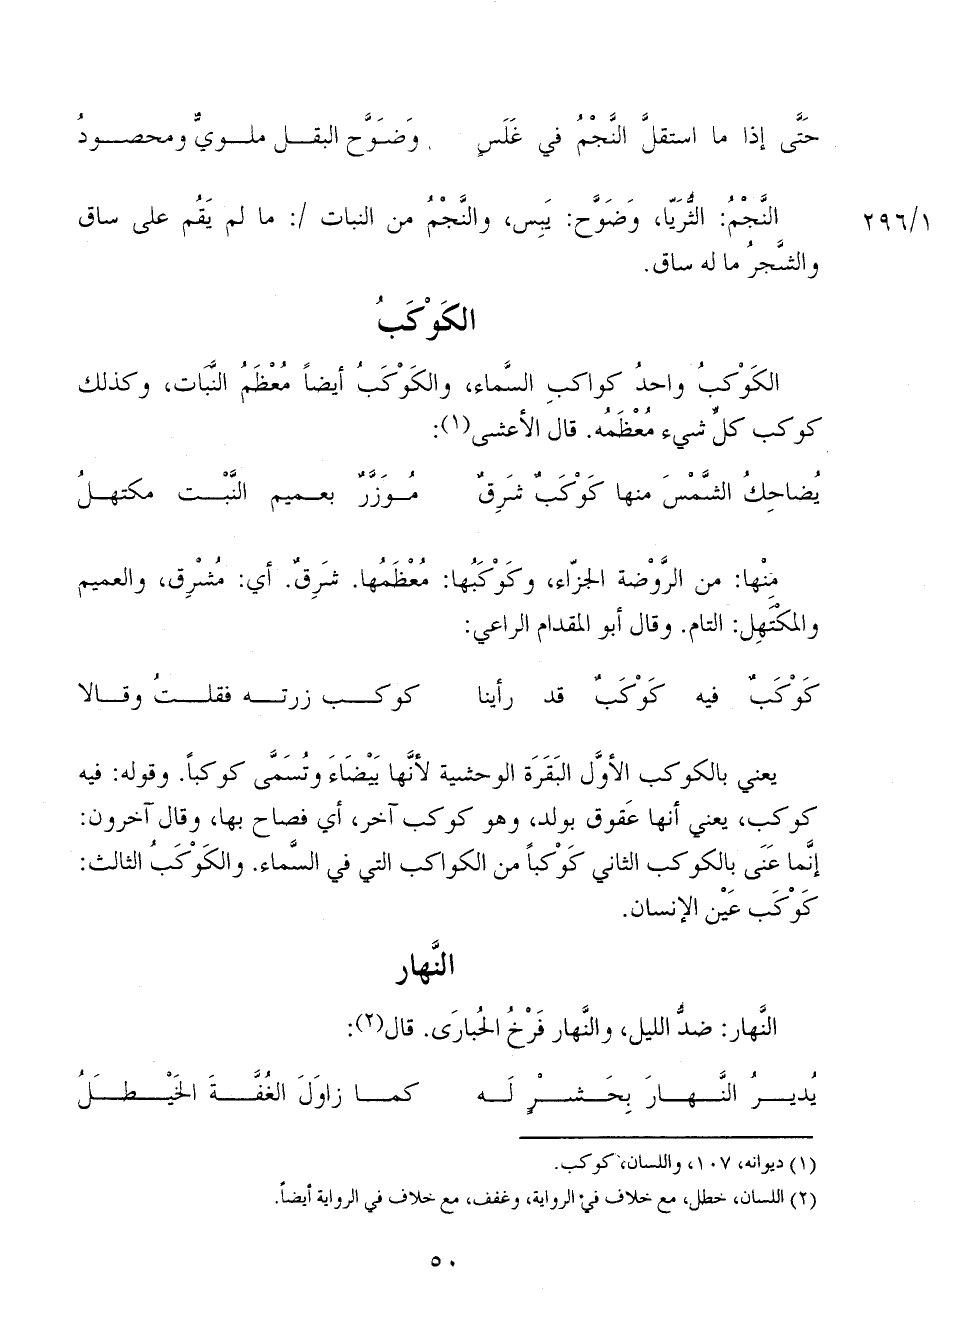 حَتَّى إذا ما استقلَّ النَّجْمُ في غَلَسٍ وَضَوَّح البقـل ملـويٌّ ومحصـودُ
٢٩٦/١ النَّجْمُ: الثُّريَّا، وَضَوَّح: يَبِس، والنَّجْمُ من النبات /: ما لم يَقُم على ساق
والشَّجرُ ما له ساق.
الكَوْكَبُ
الكَوْكَبُ واحدُ كواكبِ السَّماء، والكَوْكَبُ أيضاً مُعْظَمُ النَّبَات، وكذلك
كوكب كلِّ شيء مُعْظَمُه. قال الأعشى(١):
يُضاحِكُ الشَّمْسَ منها كَوْكَبٌ شَرِقٌ مُـوَزَّرٌ بعـميم النَّبْـت مكتهـلُ
مِنْها: من الرَّوْضة الجزَّاء، وكَوْكَبُها: مُعْظَمُها. شَرِقٌ. أي: مُشْرِق، والعميم
والمكْتَهِل: التام. وقال أبو المقدام الراعي:
كَوْكَبٌ فيه كَوْكَبٌ قد رأينا كوكـب زرتـه فقلـتُ وقـالا
يعني بالكوكب الأوَّل البَقَرَة الوحشية لأنَّها بَيْضَاءَ وتُسَمَّى كوكباً. وقوله: فيه
كوكب، يعني أنها عَقوق بولد، وهو كوكب آخر، أي فصاح بها، وقال آخرون:
إنَّما عَنَى بالكوكب الثاني كَوْكباً من الكواكب التي في السَّماء. والكَوْكَبُ الثالث:
كَوْكَب عَيْن الإنسان.
النَّهار
النَّهار: ضدُّ الليل، والنَّهار فَرْخُ الحُبارَى. قال(٢):
يُديـرُ النَّـهـارَ بِحَـشْـرٍ لَـه كمـا زاوَلَ الغُفَّـةَ الخَيْـطَـلُ
(١) ديوانه، ١٠٧، واللسان، كوكب.
(٢) اللسان، خطل، مع خلاف في الرواية، وغفف، مع خلاف في الرواية أيضاً.
٥٠